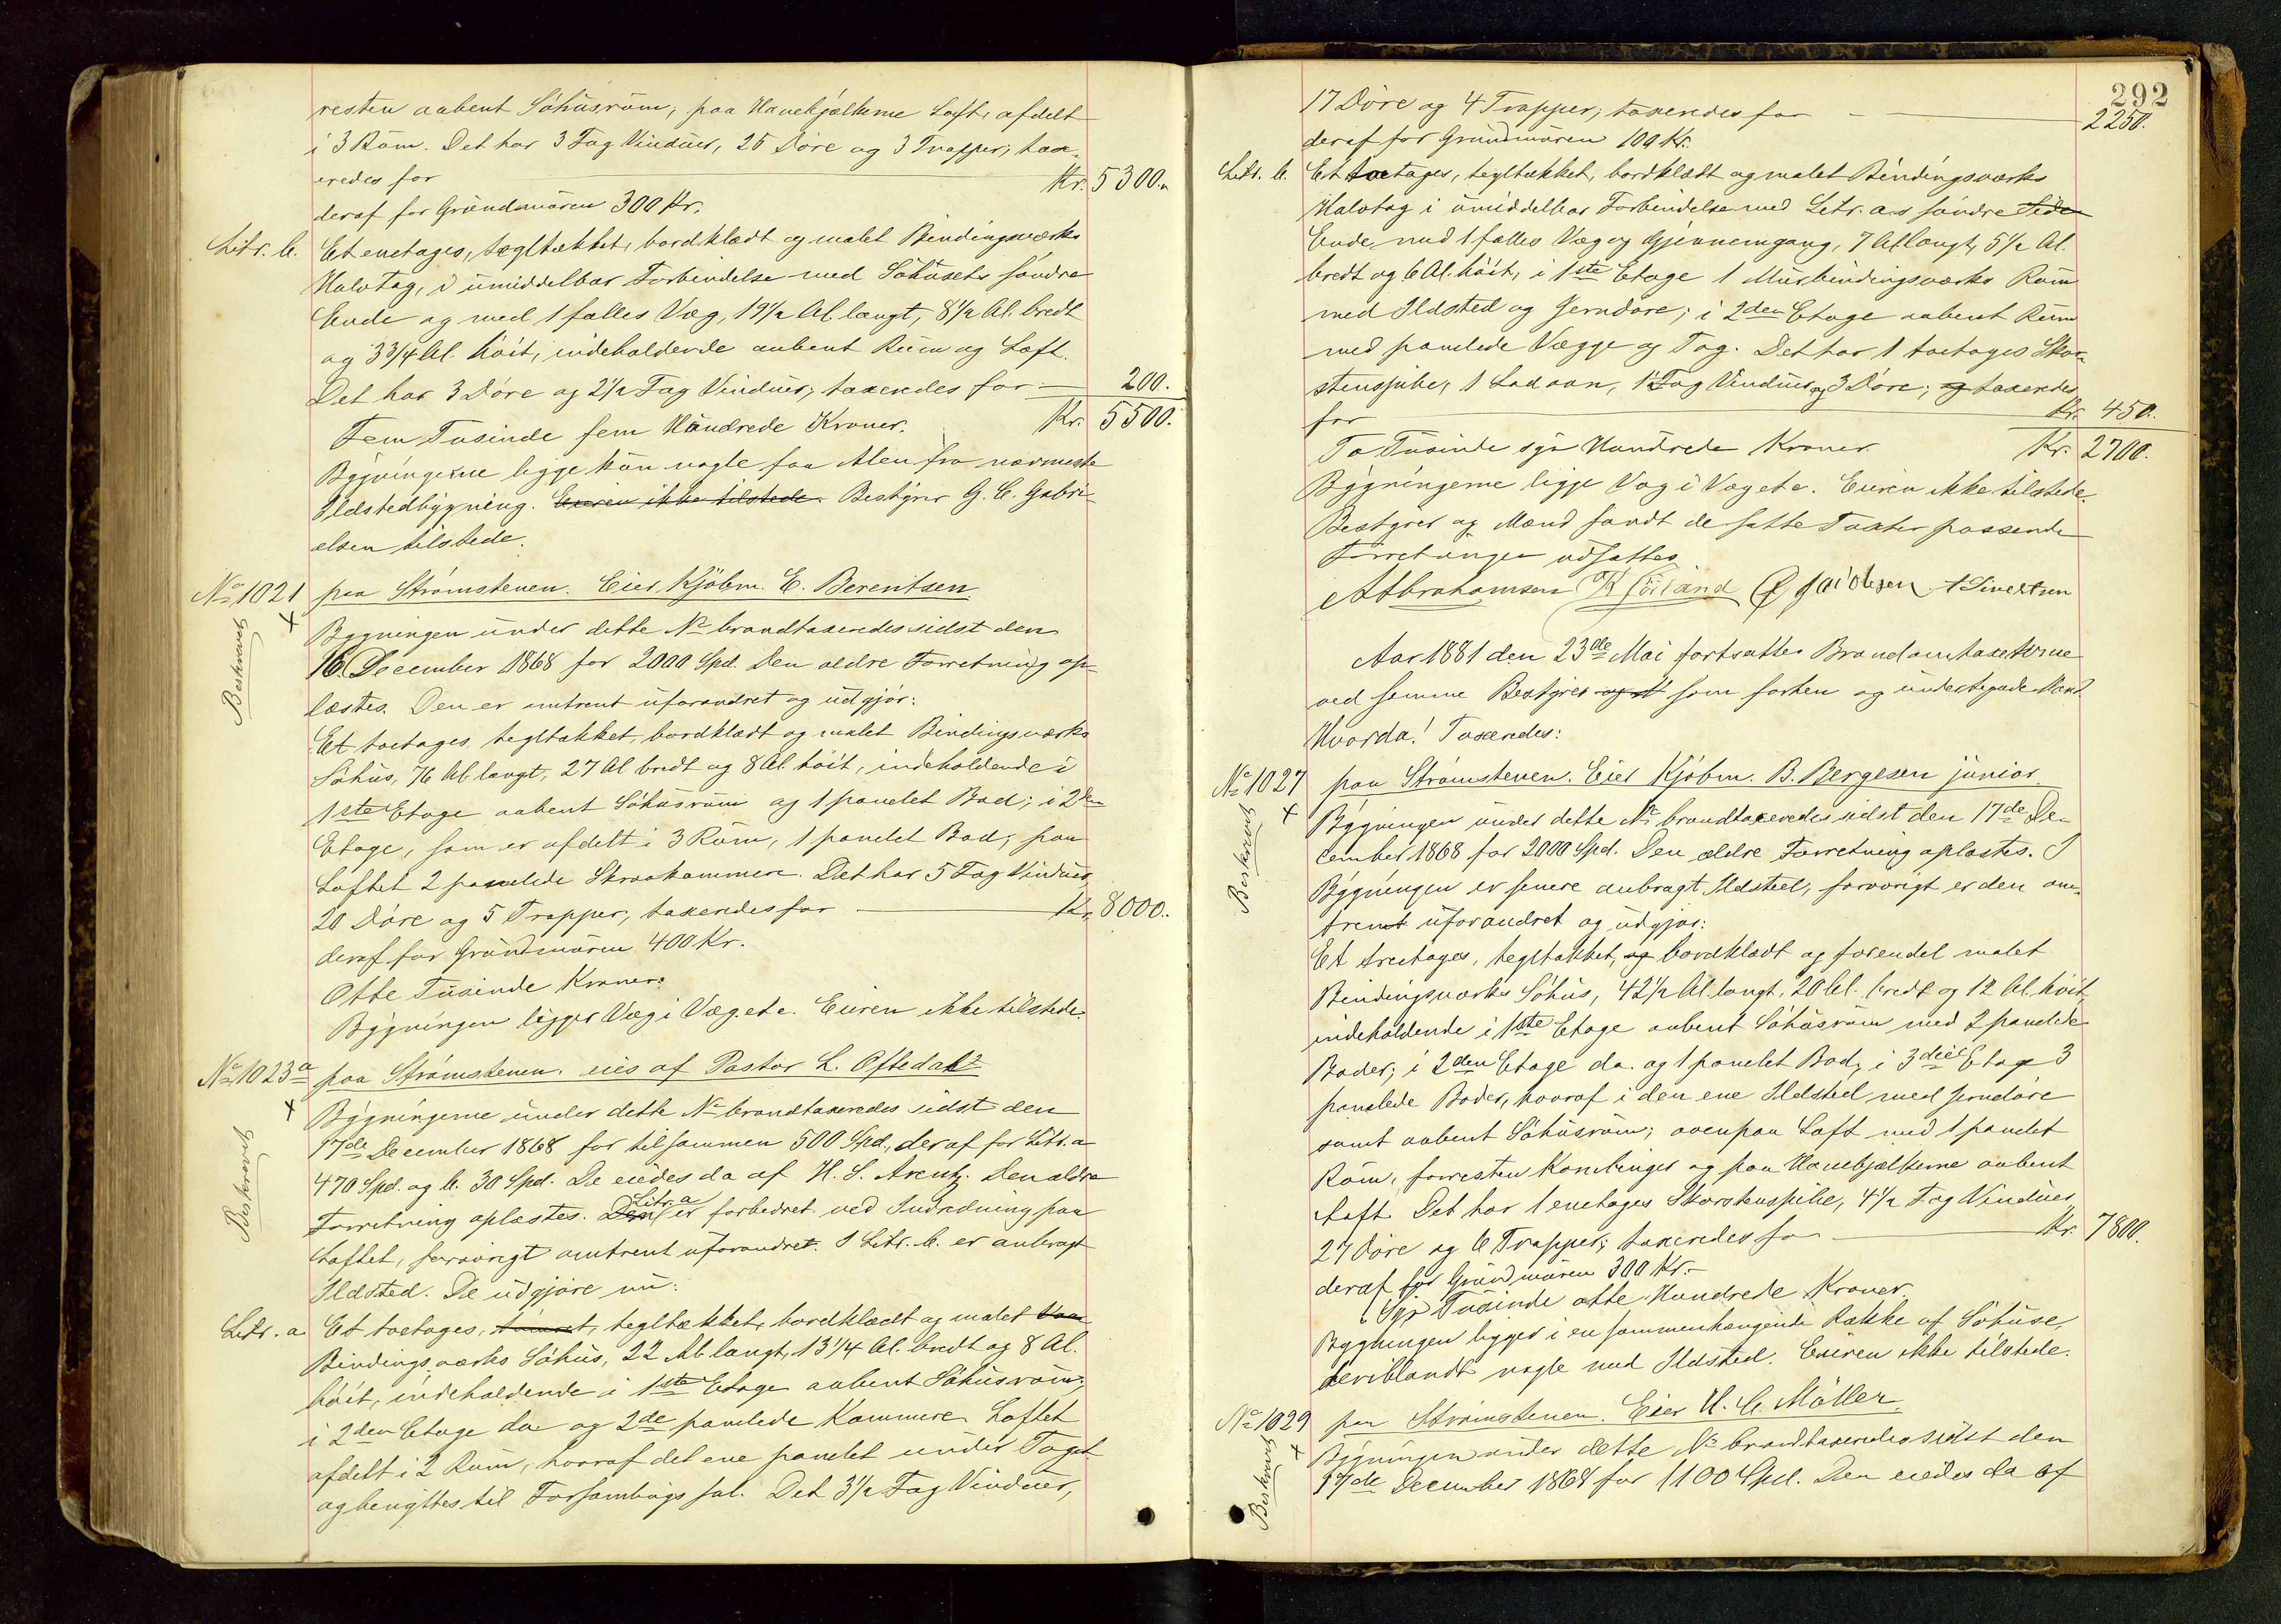 resten aabent Söhüsrüm, paa Hanebjælkerne Loft, afdelt
i 3 Rüm. Det har 3 Fag Vindüer, 25 Döre og 3 Trapper, tax-
eredes for Kr. 5300.
deraf for Gründmüren 300 Kr.
Litr. b. Et enetages, tegltækket, bordklædt og malet Bindingsværks
Halvtag, i ümiddelbar Forbindelse med Söhüsets söndre
Ende og med 1 fælles Væg, 19 1/2 Al. langt, 8 1/2 Al. bredt
og 3 3/4 Al. höit, indeholdende aabent Rüm og Loft.
Det har 3 Döre og 2 1/2 Fag Vindüer, taxeredes for 200.
Fem Tusinde fem Hündrede Kroner. Kr. 5500.
Bÿgningerne ligge kün nogle faa Alen fra nærmeste
Ildstedbygning. Eieren ikke tilstede. Bestÿrer G. C. Gabri-
elsen tilstede.
No 1021 paa Strömstenen. Eier Kjöbm. E. Berentsen
Beskrevet
Bygningen ünder dette No brandtaxeredes sidst den
16. December 1868 for 2000 Spd. Den ældre Forretning op-
læstes. Den er omtrent üforandret og üdgjör:
Et toetages, tegltækket, bordklædt og malet Bindingsværks
Söhüs, 76 Al. langt, 27 Al. bredt og 8 Al. höit, indeholdende i
1ste Etage aabent Söhüsrüm og 1 panelet Bod; i 2den
Etage, som er afdelt i 3 Rüm, 1 panelet Bod; paa
Loftet 2 panelede Skraakammere. Det har 5 Fag Vindüer,
20 Döre og 5 Trapper, taxeredes for Kr. 8000.
deraf for Gründmüren 400 Kr.
Otte Tüsinde Kroner.
Bÿgningen ligger Væg i Væg etc. Eieren ikke tilstede.
No 1023a paa Strömstenen. eies af Pastor L. Oftedahl
Beskrevet
Bÿgningerne ünder dette No brandtaxeredes sidst den
17de December 1868 for tilsammen 500 Spd., deraf for Litr. a
470 Spd. og b. 30 Spd. De eiedes da af H. S. Arentz. Den ældre
Forretning oplæstes. Den Litr. a er forbedret ved Indredning paa
Loftet, forövrigt omtrent üforandret. I Litr. b. er anbragt
Ildsted. De üdgjöre nü:
Litr. a Et toetages, tömret, tegltækket, bordklædt og malet
Bindingsværks Söhüs, 22 Al. langt, 13 1/4 Al. bredt og 8 Al.
höit, indeholdende i 1ste Etage aabent Söhüsrüm,
i 2den Etage do og 2de panelede Kammere. Loftet
afdelt i 2 Rüm, hvoraf det ene panelet ünder Taget
og benyttes til Forsamlingssal. Det 3 1/2 Fag Vindüer,
292
17 Döre og 4 Trapper, taxeredes for 2250.
deraf for Gründmüren 100 Kr.
Litr. b. Et toetages, tegltækket, bordklædt og malet Bindingsværks
Halvtag i ümiddelbar Forbindelse med Litr. a.s söndre Side
Ende, med 1 fælles Væg og Gjennemgang, 7 Al. langt, 5 1/2 Al.
bredt og 6 Al. höit, i 1ste Etage 1 Mürbindingsværks Rüm
med Ildsted og Jerndöre; i 2den Etage aabent Rüm
med panelede Vægge og Tag. Det har 1 toetages Skor-
stenspibe, 1 Ladoan, 1 Fag Vindüer og 3 Döre; og taxeredes
for Kr. 450.
To Tüsinde syv Hundrede Kroner. Kr. 2700.
Bÿgningerne ligge Væg i Væg etc. Eieren ikke tilstede.
Bestyrer og Mænd fandt de satte Taxter passende
Forretningen udsattes
A Abrahamsen K Sörland J Jacobsen A Sivertsen
Aar 1881 den 23de Mai fortsattes Brandomtaxterne
ved samme Bestÿrer og som forhen og ündertegnede Mænd
Hvorda! Taxeredes:
No 1027 paa Strömstenen. Eier Kjöbm. B. Bergesen jünior.
Beskrevet
Bÿgningen ünder dette No brandtaxeredes sidst den 17de De-
cember 1868 for 2000 Spd. Den ældre Forretning oplæstes. I
Bÿgningen er senere anbragt Ildsted, forövrigt er den om-
trent üforandret og üdgjör:
Et treetages, tegltækket, og bordklædt og forendel malet
Bindingsværks Söhüs, 42 1/2 Al. langt, 20 Al. bredt og 12 Al. höit,
indeholdende i 1ste Etage aabent Söhüsrüm med 2 panelede
Boder; i 2den Etage do. og 1 panelet Bod; i 3die Etage 3
panelede Boder, hvoraf i den ene Ildsted med Jerndöre
samt aabent Söhüsrüm; ovenpaa Loft med 1 panelet
Rüm, forresten Kornbinger og paa Hanebjælkerne aabent
Loft. Det har 1 enetages Skorstenspibe, 4 1/2 Fag Vindüer,
27 Döre og 6 Trapper; taxeredes for Kr. 7800.
deraf for Gründmüren 300 Kr.
Syv Tüsinde otte Hundrede Kroner.
Bygningen ligger i en sammenhængende Række af Söhüse,
deriblandt nogle med Ildsted. Eieren ikke tilstede.
No 1029 paa Strömstenen. Eier H. C. Möller.
Beskrevet
Bÿgningen ünder dette No brandtaxeredes sidst den
17de December 1868 for 1100 Spd. Den eiedes da af